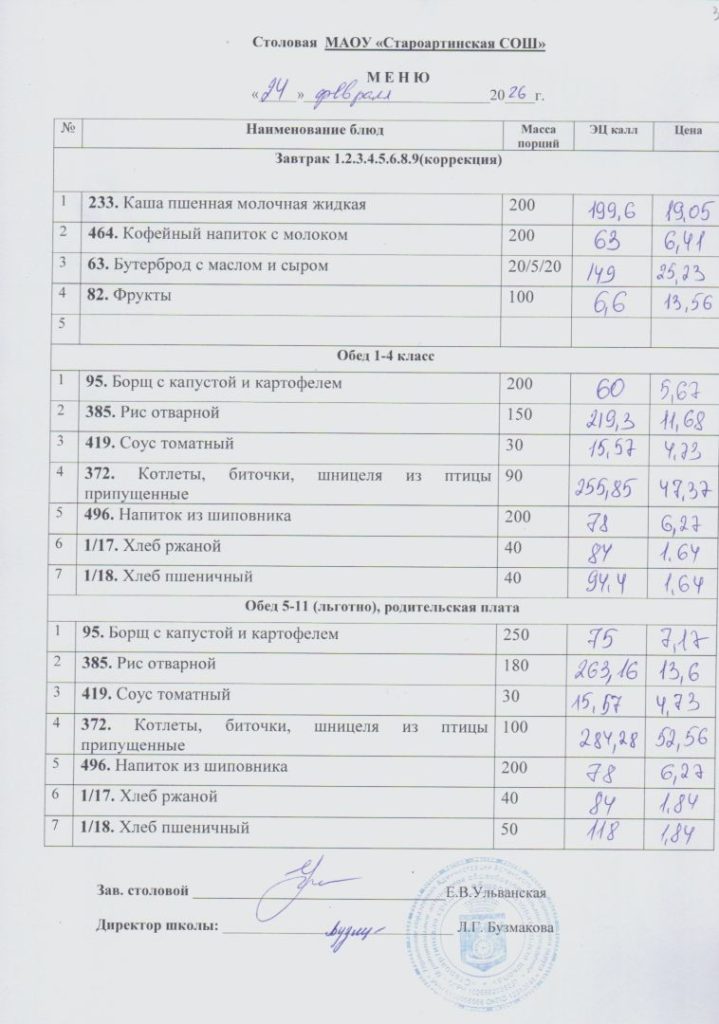 Столовая МАОУ «Староартинская СОШ»
МЕНЮ
«24» февраля 2026 г.
№ Наименование блюд Масса порций ЭЦ калл Цена
Завтрак 1.2.3.4.5.6.8.9(коррекция)
1 233. Каша пшенная молочная жидкая 200 199,6 19,05
2 464. Кофейный напиток с молоком 200 63 6,41
3 63. Бутерброд с маслом и сыром 20/5/20 149 25,23
4 82. Фрукты 100 6,6 13,56
5
Обед 1-4 класс
1 95. Борщ с капустой и картофелем 200 60 5,67
2 385. Рис отварной 150 219,3 11,68
3 419. Соус томатный 30 15,57 4,73
4 372. Котлеты, биточки, шницеля из птицы 90 255,85 47,37
припущенные
5 496. Напиток из шиповника 200 78 6,27
6 1/17. Хлеб ржаной 40 84 1.64
7 1/18. Хлеб пшеничный 40 94,4 1,64
Обед 5-11 (льготно), родительская плата
1 95. Борщ с капустой и картофелем 250 75 7,17
2 385. Рис отварной 180 263,16 13,6
3 419. Соус томатный 30 15,57 4,73
4 372. Котлеты, биточки, шницеля из птицы 100 284,28 52,56
припущенные
5 496. Напиток из шиповника 200 78 6,27
6 1/17. Хлеб ржаной 40 84 1,84
7 1/18. Хлеб пшеничный 50 118 1,84
Зав. столовой Е.В.Ульванская
Директор школы: Л.Г. Бузмакова